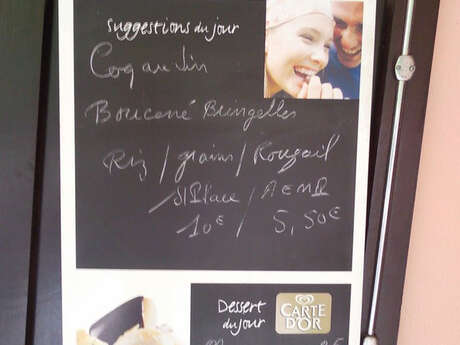 Suggestions du jour
Coq au Vin
Boucané Bringelles
Riz / grains / Rougail
S/Place / A EMP
10€ / 5,50€
Dessert
du jour
CARTE
D'OR